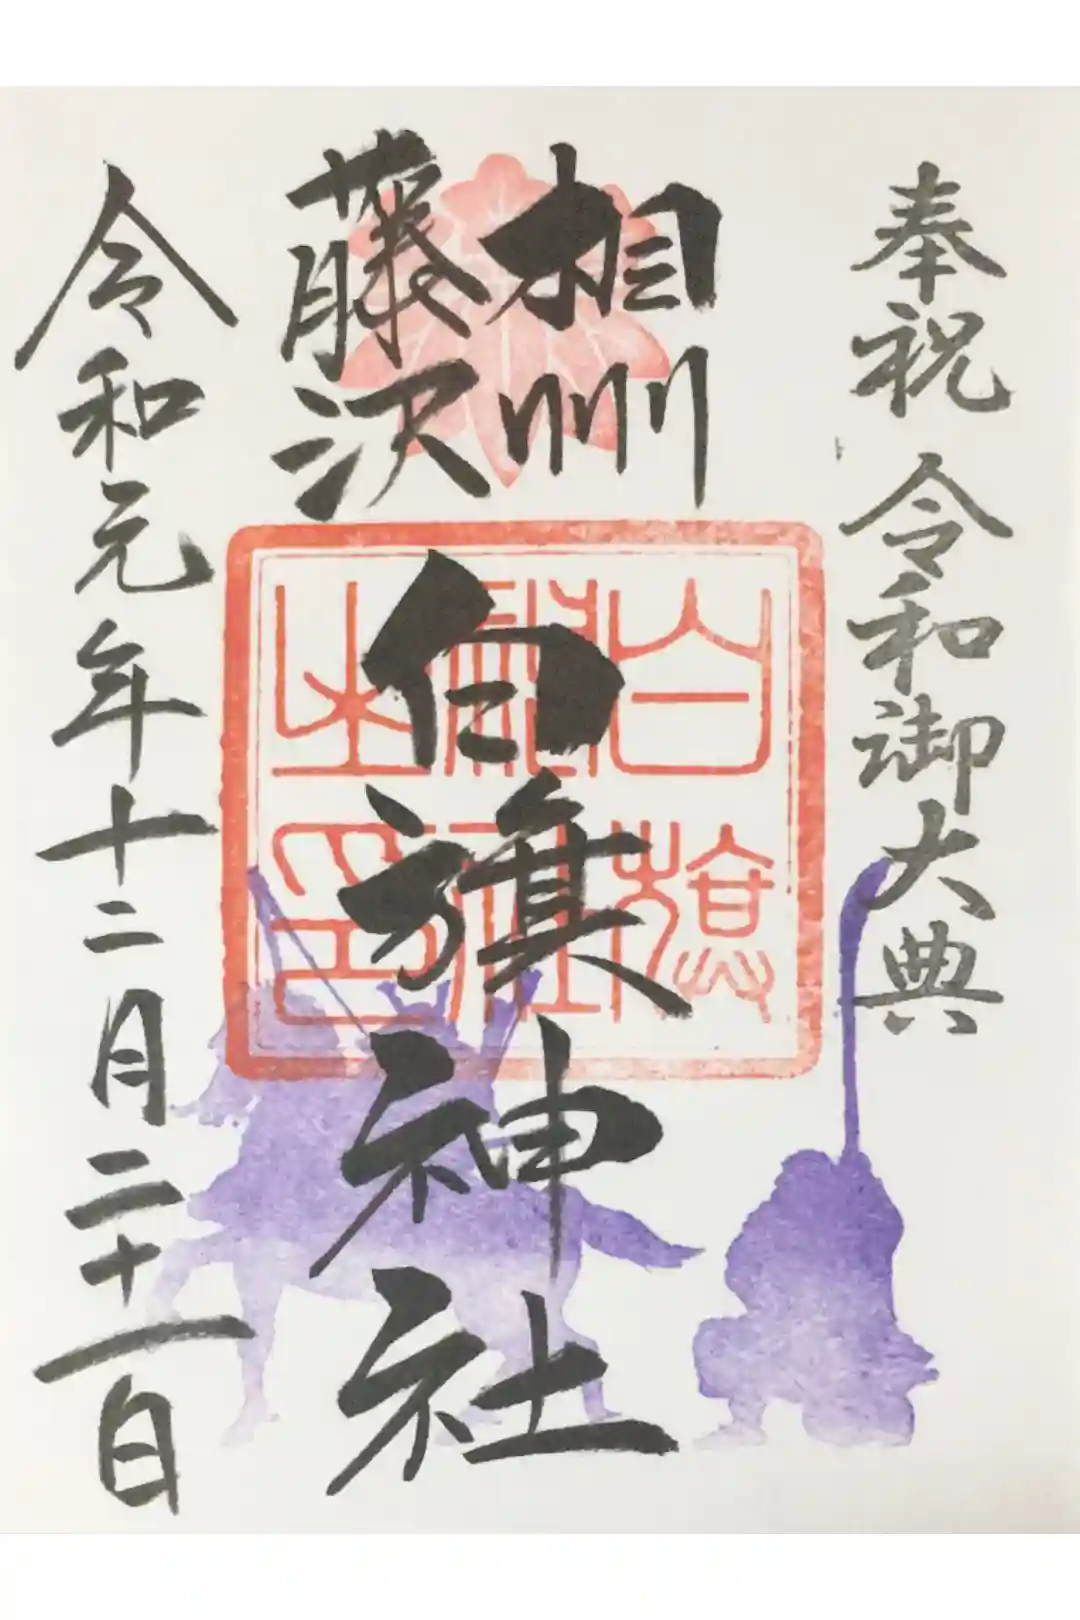 奉祝 令和御大典
相州
藤沢
白旗神社
白旗
神社
之印
令和元年十二月二十一日